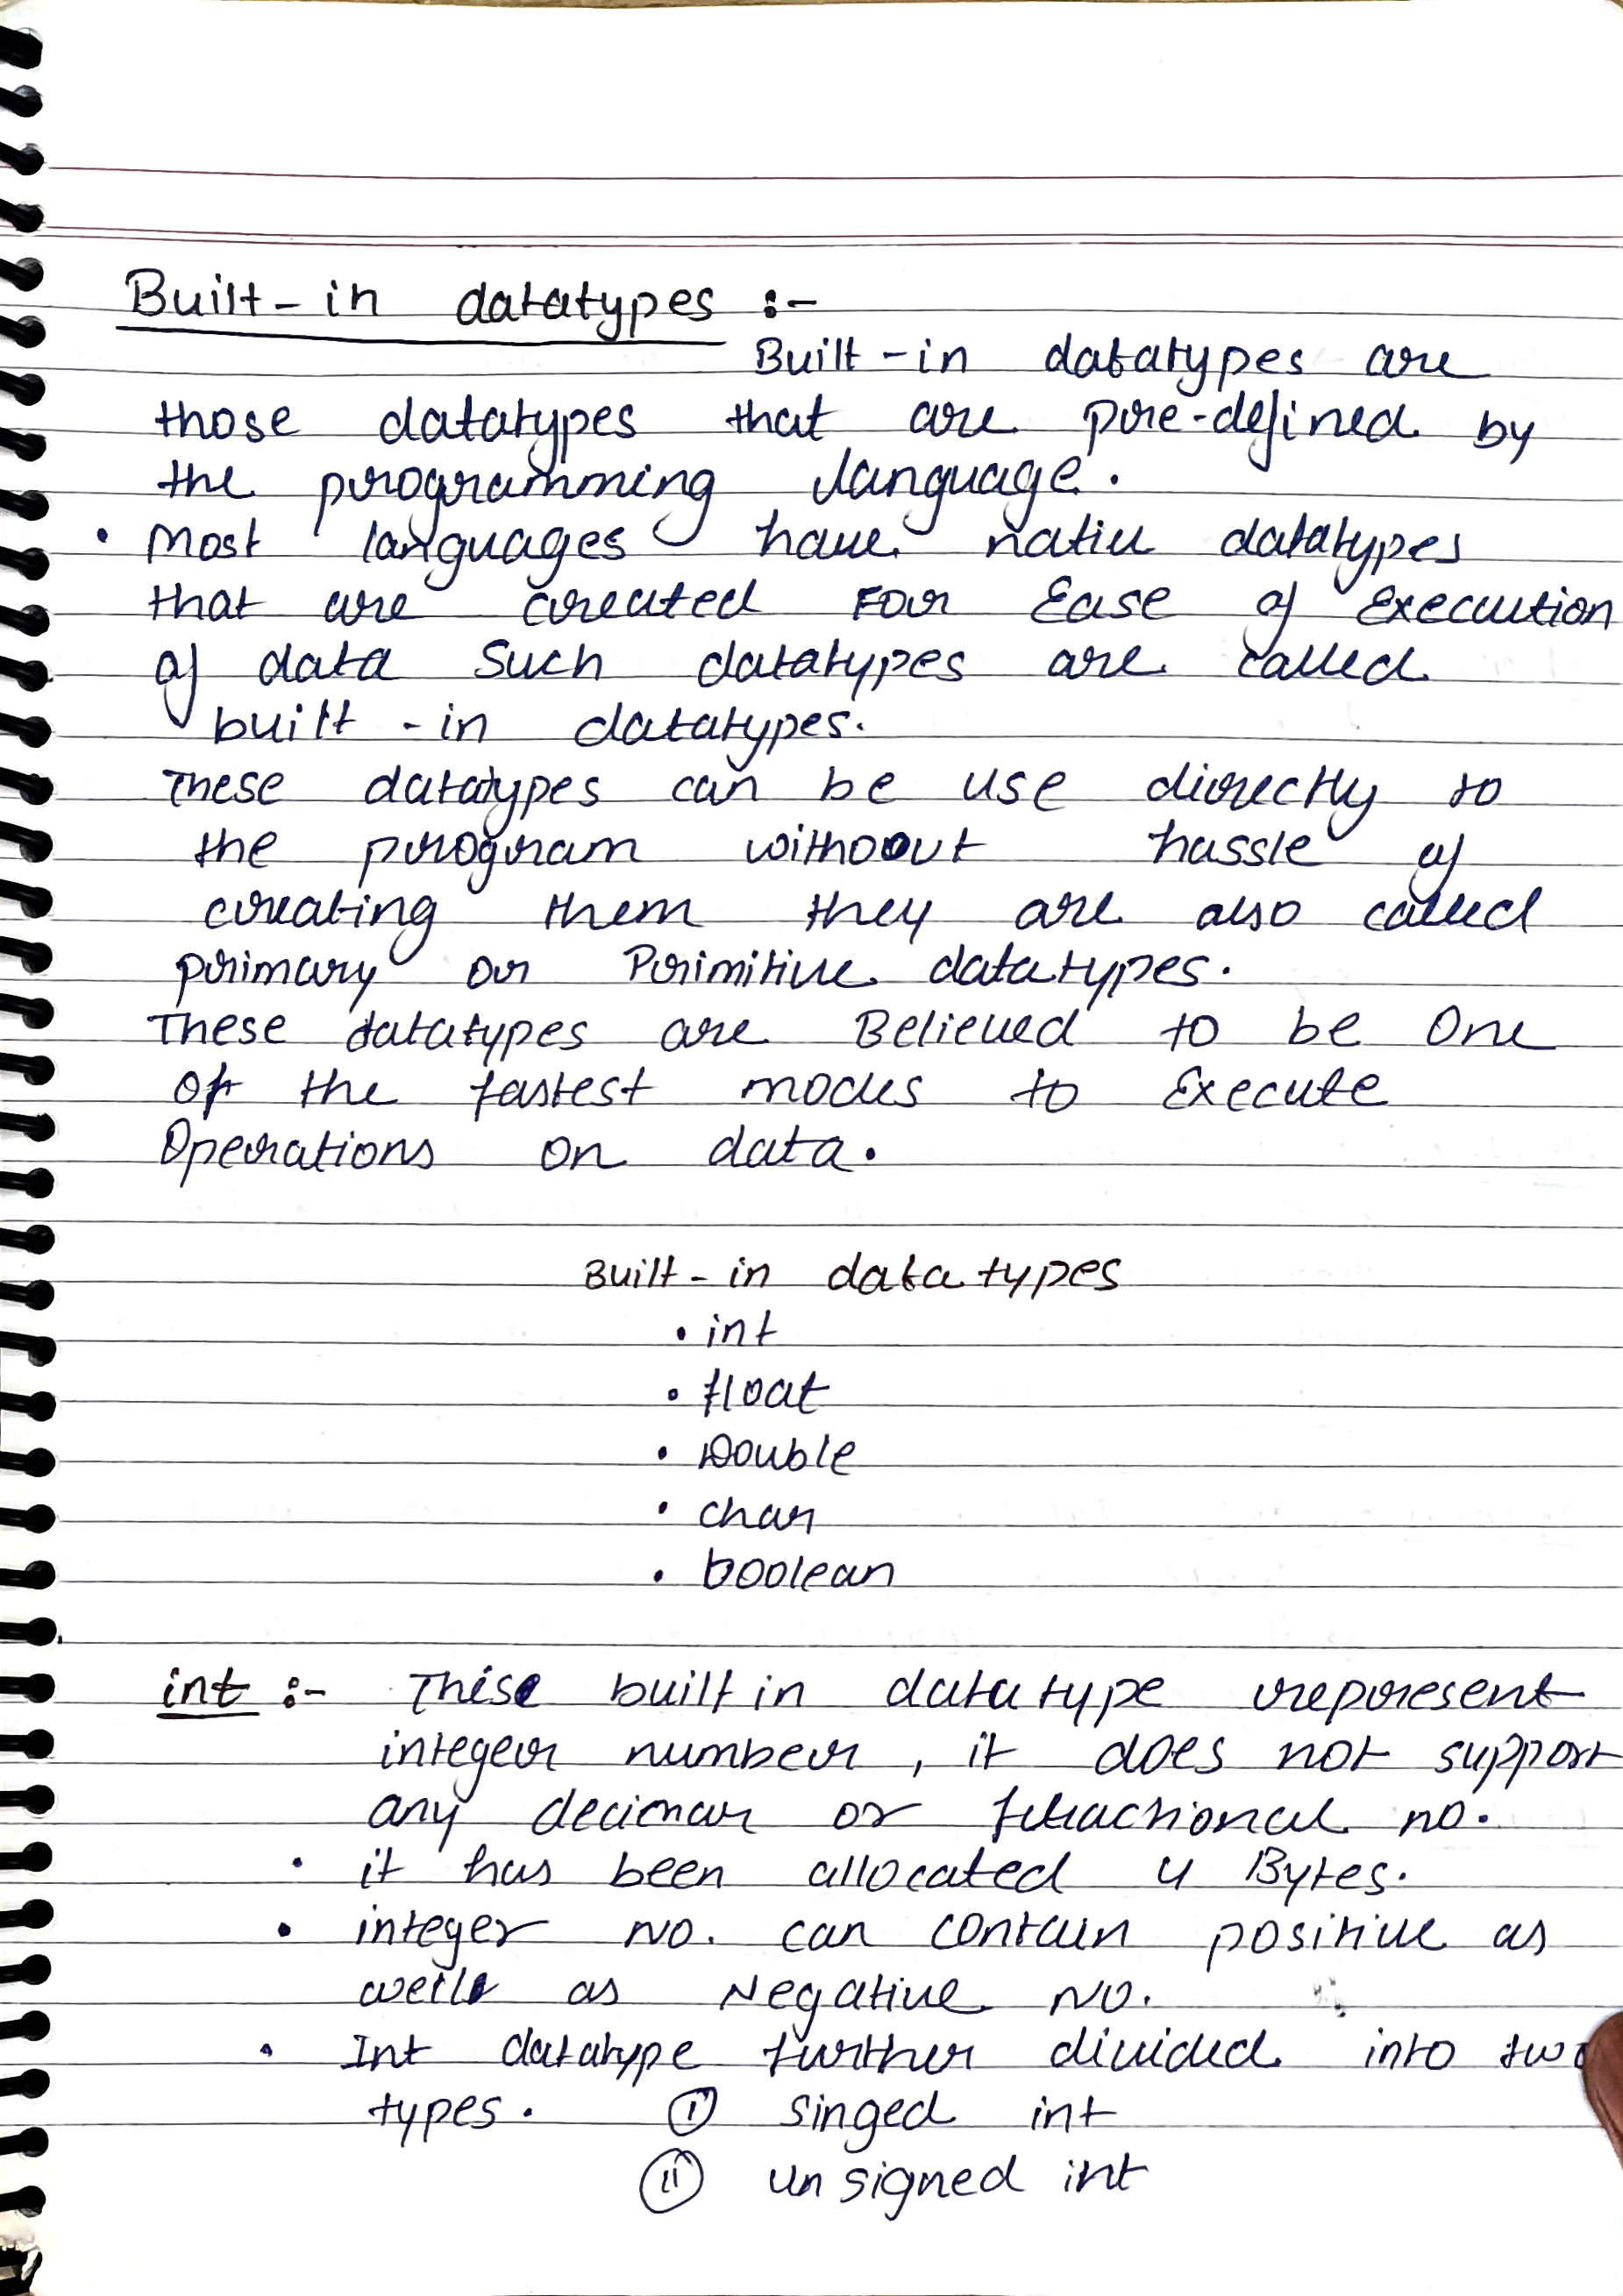 Built-in datatypes :-
Built-in datatypes are
those datatypes that are pre-defined by
the programming language.
• Most languages have native datatypes
that are created For Ease of Execution
of data such datatypes are called
built-in datatypes.
These datatypes can be use directly to
the program without hassle of
creating them they are also called
primary or Primitive datatypes.
These datatypes are Believed to be One
of the fastest modes to Execute
Operations on data.
Built-in data types
• int
• float
• Double
• char
• boolean
int :- These built in data type represent
integer number, it does not support
any decimar or fractional no.
• it has been allocated 4 Bytes.
• integer NO. can contain positive as
well as Negative NO.
• Int datatype further divided into two
types. (i) singed int
(ii) un signed int